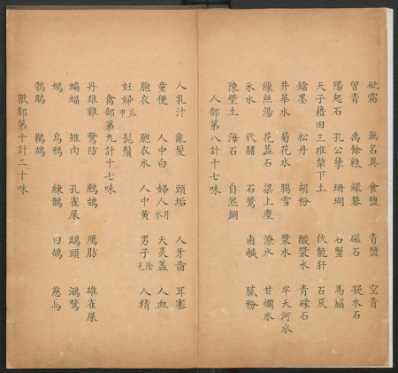 砒霜 無名異 食鹽 青鹽 空青
曾青 禹餘粮 綠鹽 磁石 凝水石
陽起石 孔公孽 珊瑚 石蟹 馬腦
天子籍田三推犂下土 伏龍肝 石灰
鐺墨 松丹 胡粉 酸漿水 青礞石
井華水 菊花水 臘雪 漿水 半天河水
繰絲湯 花蕊石 梁上塵 潦水 甘爛水
氷水 代赭 石鷰 鹵鹹 膩粉
陳壁土 海石 自然銅
人部第八計十七味
人乳汁 亂髮 頭垢 人牙齒 耳塞
童便 人中白 婦人月水 天灵盖 人血
胞衣 胞衣水 人中黄 男子陰毛 人精
妊婦爪 髭鬚
禽部第九計十七味
丹雄雞 鷩肪 鸕鷀 鴈肪 雄雀屎
蝙蝠 雉肉 孔雀屎 鴟頭 鴻鷺
鴆 烏鴉 練鵲 白鴿 慈烏
鶻鵰 鵜鴣
獸部第十計二十味